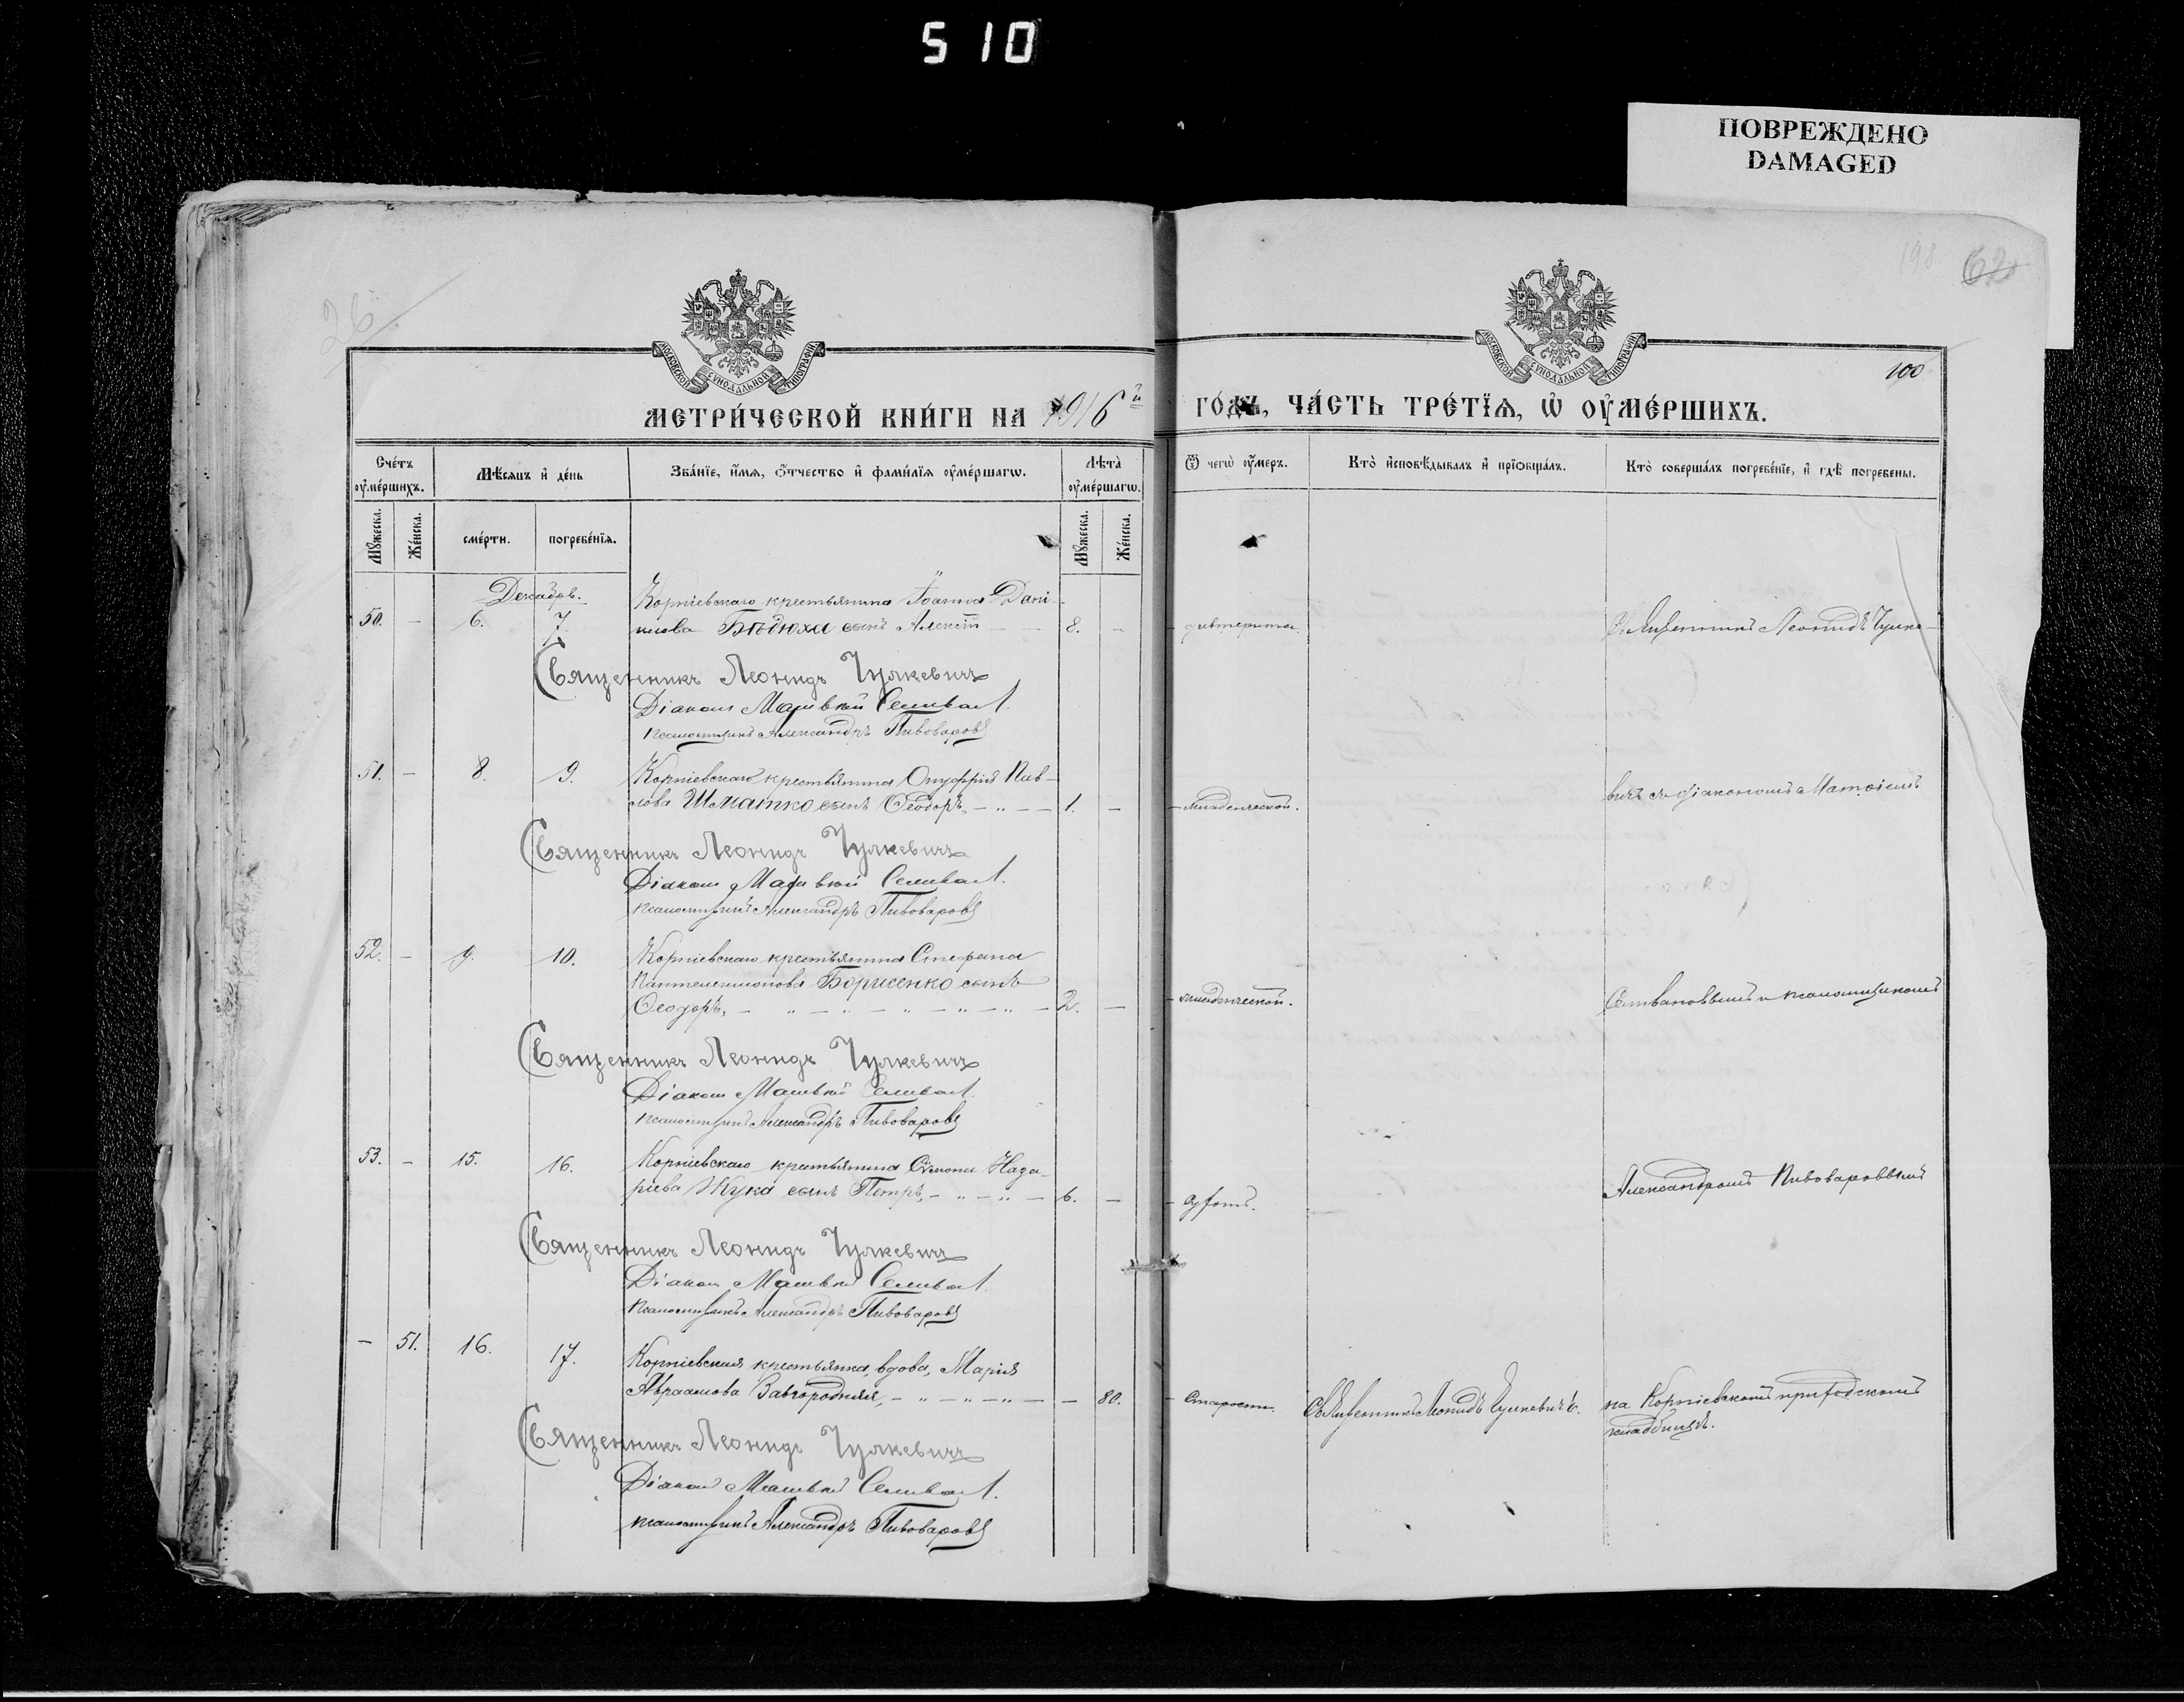 510
ПОВРЕЖДЕНО
DAMAGED
198
62
26
МОСКОВСКОЙ СУНОДАЛЬНОЙ ТИПОГРАФІИ
МОСКОВСКОЙ СУНОДАЛЬНОЙ ТИПОГРАФІИ
100
МЕТРИ́ЧЕСКОЙ КНИ́ГИ НА 1916й ГО́ДЪ, ЧА́СТЬ ТРЕ́ТЇѦ, Ѡ҆ ОУ҆МЕ́РШИХЪ.
Сче́тъ оу҆ме́ршихъ.
Мѣ́сяцъ и҆ де́нь
Зва́нїе, и҆́мѧ, ѻ҆́тчество и҆ фами́лїѧ оу҆ме́ршагѡ.
Лѣ́та оу҆ме́ршагѡ.
Ѿ чегѡ̀ оу҆́меръ.
Кто̀ и҆сповѣ́дывалъ и҆ прїѡбща́лъ.
Кто̀ соверша́лъ погребе́нїе, и҆ гдѣ̀ погребены.
Мꙋ́жеска.
Же́нска.
сме́рти.
погребе́нїѧ.
Мꙋ́жеска.
Же́нска.
Декабрь.
Корніевскаго крестьянина Іоанна Дані-
50. - 6. 7. илова Бѣдюха сынъ Алексій - - 8. - - дифтерита. Священникъ Леонидъ Чулке-
Священникъ Леонидъ Чулкевичъ
Діаконъ Матвѣй Селиванов
псаломщикъ Александръ Пивоваровъ
51. - 8. 9. Корніевскаго крестьянина Онуфрія Пав-
лова Шматко сынъ Ѳеодоръ, - „ - - 1. - - младенческой. вичъ съ діакономъ Матѳіемъ
Священникъ Леонидъ Чулкевичъ
Діаконъ Матвѣй Селиванов
псаломщикъ Александръ Пивоваровъ
52. - 9. 10. Корніевскаго крестьянина Стефана
Пантелеимонова Борисенко сынъ
Ѳеодоръ, - „ - „ - „ - „ - „ - 2. - - младенческой. Селивановымъ и псаломщикомъ
Священникъ Леонидъ Чулкевичъ
Діаконъ Матвѣй Селиванов
псаломщикъ Александръ Пивоваровъ
53. - 15. 16. Корніевскаго крестьянина Сѵмеона Наза-
ріева Жука сынъ Петръ, - „ - „ - 6. - - Александромъ Пивоваровымъ
Священникъ Леонидъ Чулкевичъ
Діаконъ Матвѣй Селиванов
псаломщикъ Александръ Пивоваровъ
- 51. 16. 17. Корніевская крестьянка, вдова, Марія
Авраамова Завгородняя, - „ - „ - „ - - 80. - старости. Священникъ Леонидъ Чулкевичъ. на Корніевскомъ приходскомъ
кладбищѣ.
Священникъ Леонидъ Чулкевичъ
Діаконъ Матвѣй Селиванов
псаломщикъ Александръ Пивоваровъ